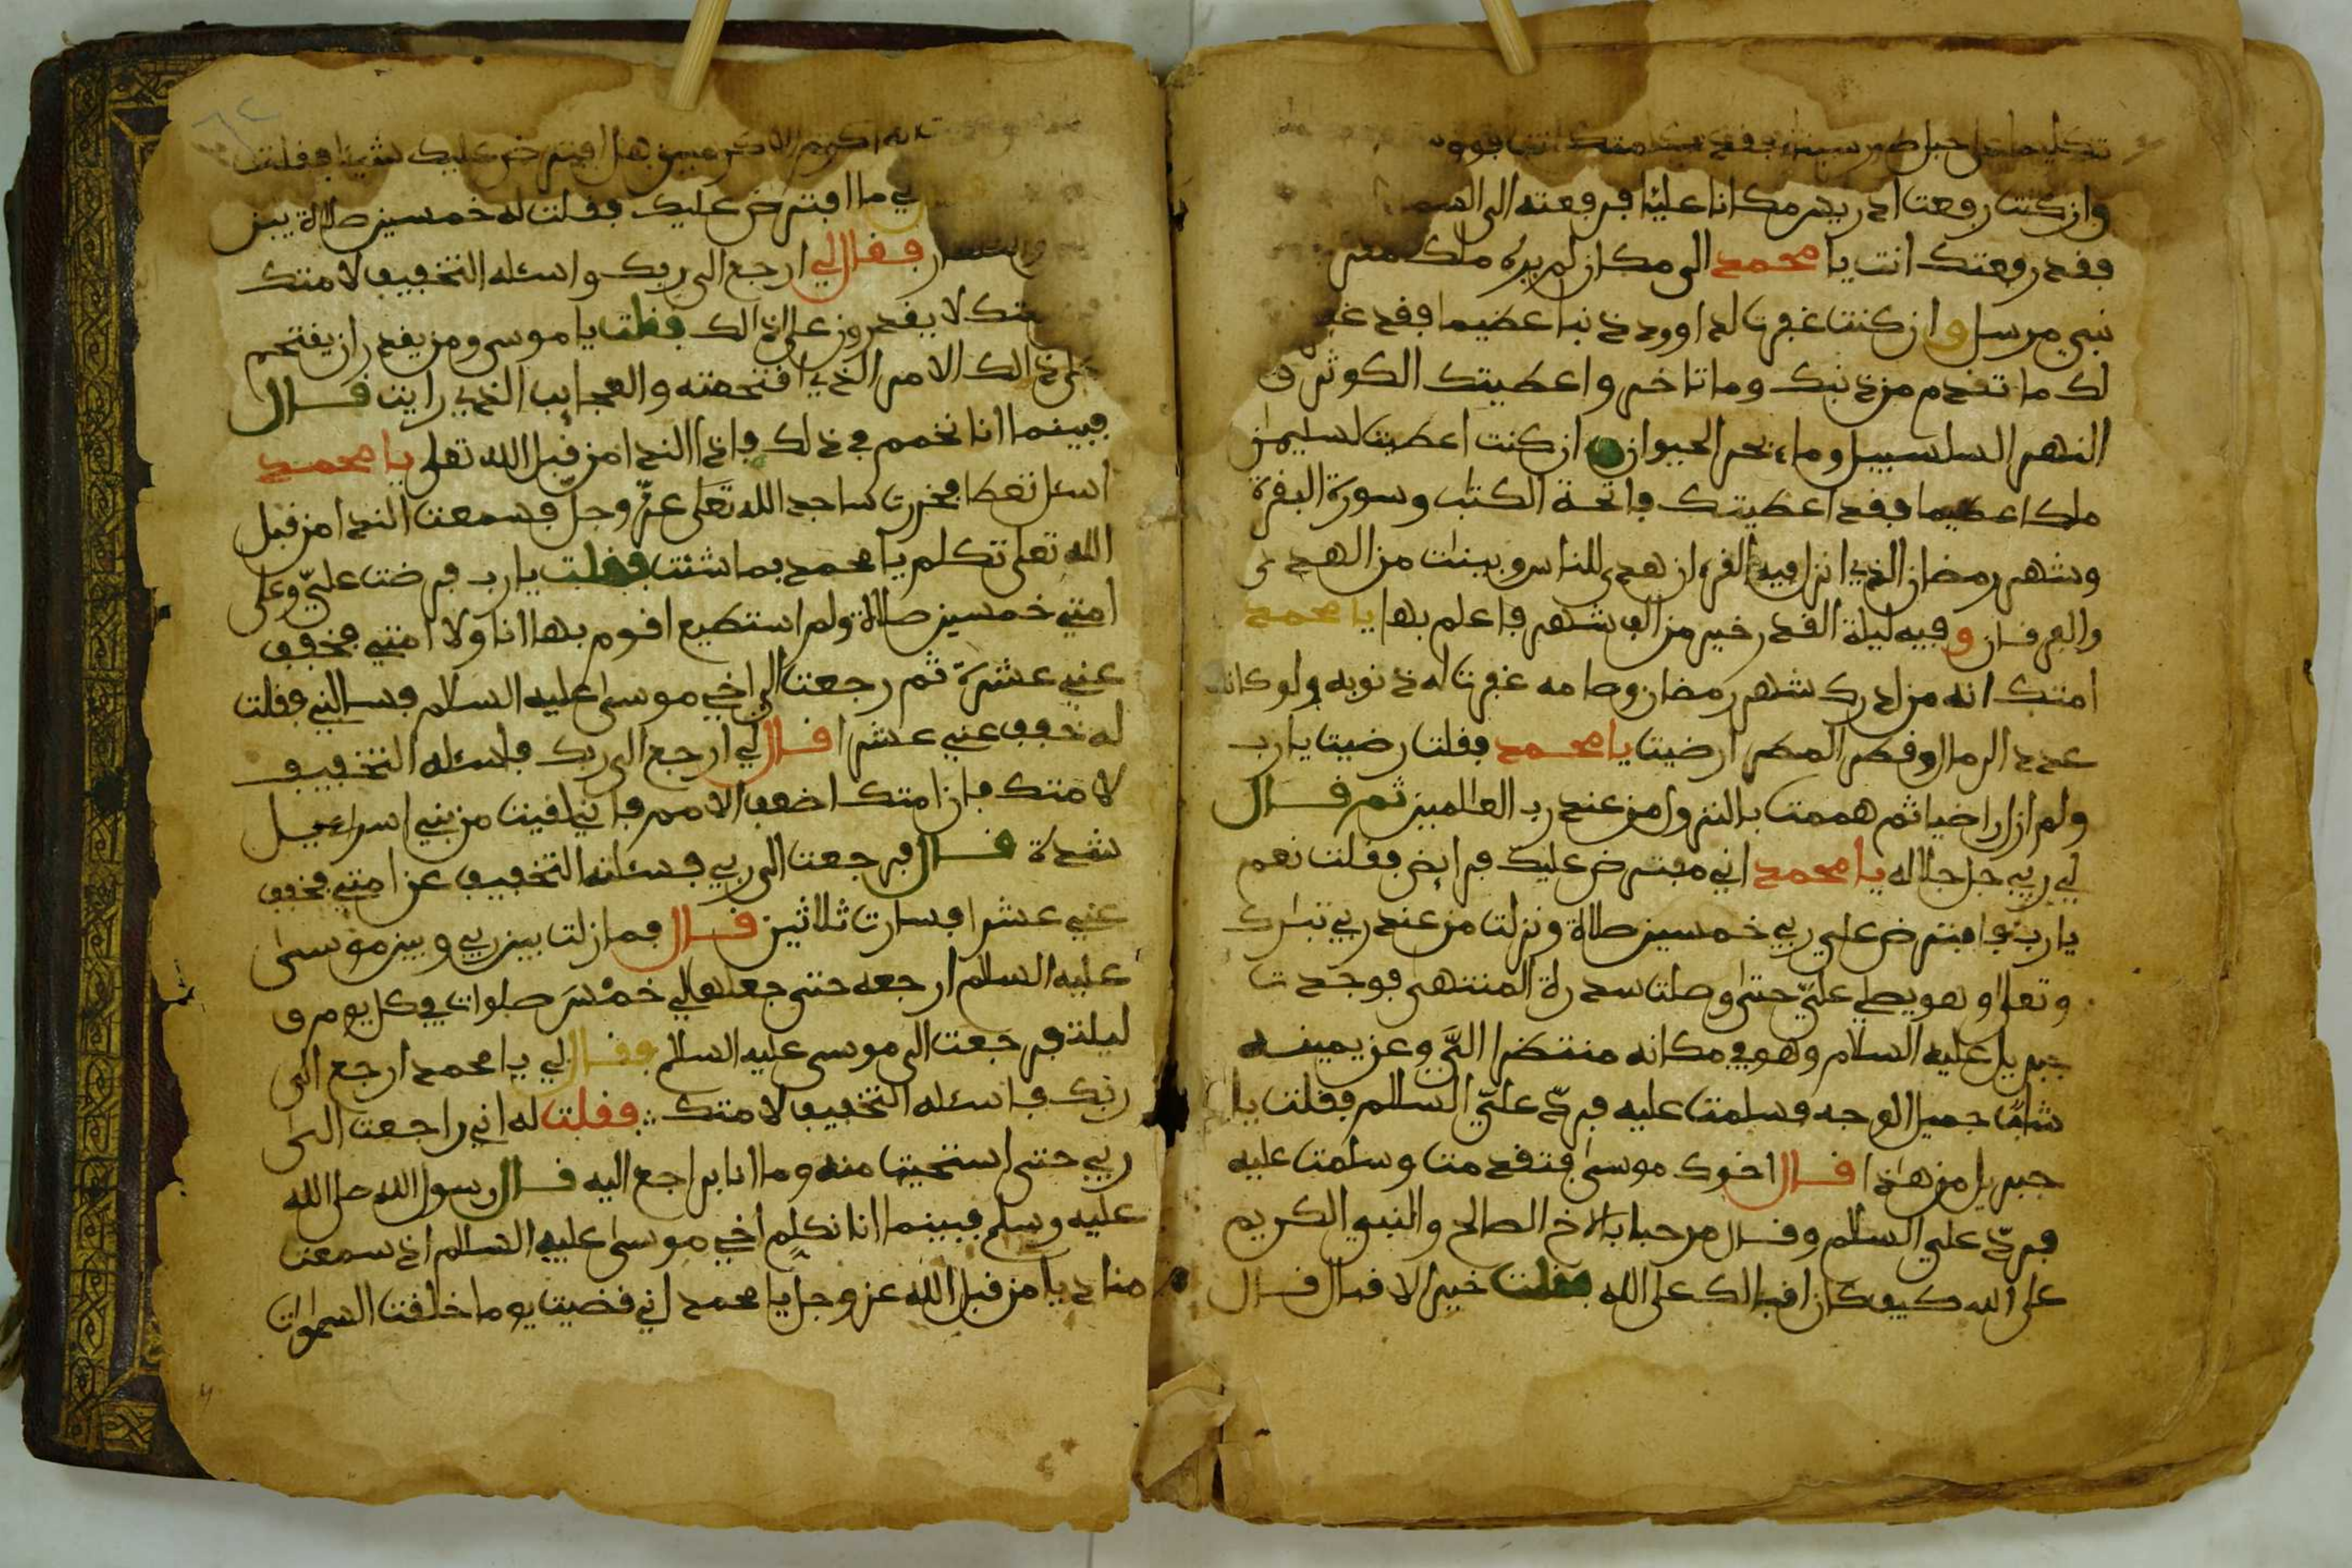 تكليما على جبل طور سيناء فقد كلمتك انت فوق
وان كنت رفعت ادريس مكانا عليا فرفعته الى السم
فقد رفعتك انت يا محمد الى مكان لم يره ملك مقر
نبي مرسل وان كنت غفرت لداوود ذنبا عظيما فقد غفر
لك ما تقدم من ذنبك وما تاخر واعطيتك الكوثر و
النهر السلسبيل وماء نحر الحيوان و ان كنت اعطيت لسليمٰن
ملكا عظيما فقد اعطيتك فاتحة الكتٰب وسورة البقرة
وشهر رمضان الذي انزل فيه القرءان هدى للناس وبينٰت من الهدى
والفرقان وفيه ليلة القدر خير من الف شهر فاعلم بها يا محمد
امتك انه من ادرك شهر رمضان وصامه غفرت له ذنوبه ولو كانت
عدد الرمال وقطر المطر ارضيت يا محمد فقلت رضيت يا رب
ولم ازل راضيا ثم هممت بالنزول من عند رب العالمين ثم قال
لي ربي جل جلاله يا محمد اني مفترض عليك فرايض فقلت نعم
يا رب فافترض علي ربي خمسين صلاة ونزلت من عند ربي تبٰرك
وتعلى وهو يصلي عليّ حتى وصلت سدرة المنتهى فوجدت
جبريل عليه السلام وهو في مكانه منتضرا اليّ وعن يمينه
شابّ جميل الوجه فسلمت عليه فردّ عليّ السلام فقلت يا
جبريل من هٰذا قال اخوك موسى فتقدمت وسلمت عليه
فردّ علي السلام وقال مرحبا بالاخ الصالح والنبي الكريم
على الله كيف كان اقبالك على الله فقلت خير الاقبال قال
انه اكرم الاكرمين هل افترض عليك شيئا فقلت
لي ما افترض عليك فقلت له خمسين صلاة بين
فقال لي ارجع الى ربك واسئله التخفيف لامتك
متك لا يقدرون على ذالك فقلت يا موسى ومن يقدر ان يقتحم
على ذالك الامر الذي اقتحمته والعجايب الذي رايت قال
فبينما انا نخمم في ذلك فاذا النداء من قبل الله تعلى يا محمد
اسئل تعطا فخررت ساجدا لله تعلى عزّ وجلّ فسمعت الندا من قبل
الله تعلى تكلم يا محمد بما شئت فقلت يا رب فرضت عليّ وعلى
امتي خمسين صلاة ولم استطيع اقوم بها انا ولا امتي فخفف
عني عشرة ثم رجعت الى اخي موسى عليه السلام فسالني فقلت
له خفف عني عشرا قال لي ارجع الى ربك فاسئله التخفيف
لامتك فان امتك اضعف الامم فاني لقيت من بني اسراءيل
شدة قال فرجعت الى ربي فسئلته التخفيف عن امتي فخفف
عني عشرا فسارت ثلاثين قال فما زلت بين ربي وبين موسى
عليه السلام ارجعه حتى جعلها لي خمْسَ صلوات في كل يوم و
ليلة فرجعت الى موسى عليه السلم فقال لي يا محمد ارجع الى
ربك فاسئله التخفيف لامتك فقلت له اني راجعت الى
ربي حتى استحيت منه وما انا براجع اليه قال رسول الله صلى الله
عليه وسلم فبينما انا نكلم اخي موسى عليه السلام اذ سمعت
مناديا من قبل الله عز وجل يا محمد اني قضيت يوما خلقت السمٰوات